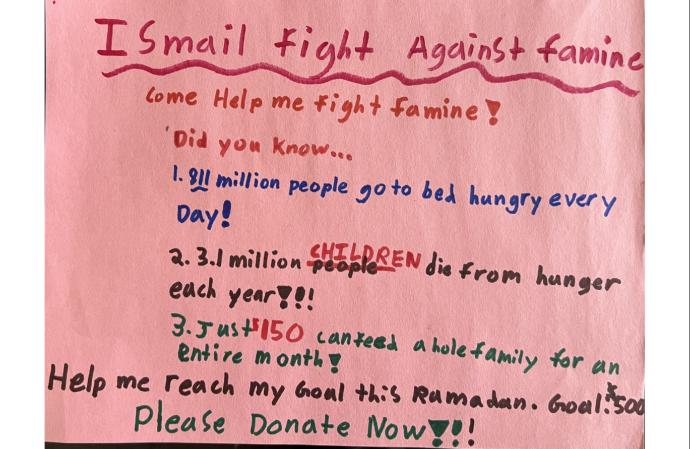 Ismail Fight Against famine
Come Help me Fight famine!
Did you Know...
1. 811 million people go to bed hungry every
Day!
2. 3.1 million people CHILDREN die from hunger
each year!!!
3. Just $150 can feed a hole family for an
entire month!
Help me reach my Goal this Ramadan. Goal: $500
Please Donate Now!!!